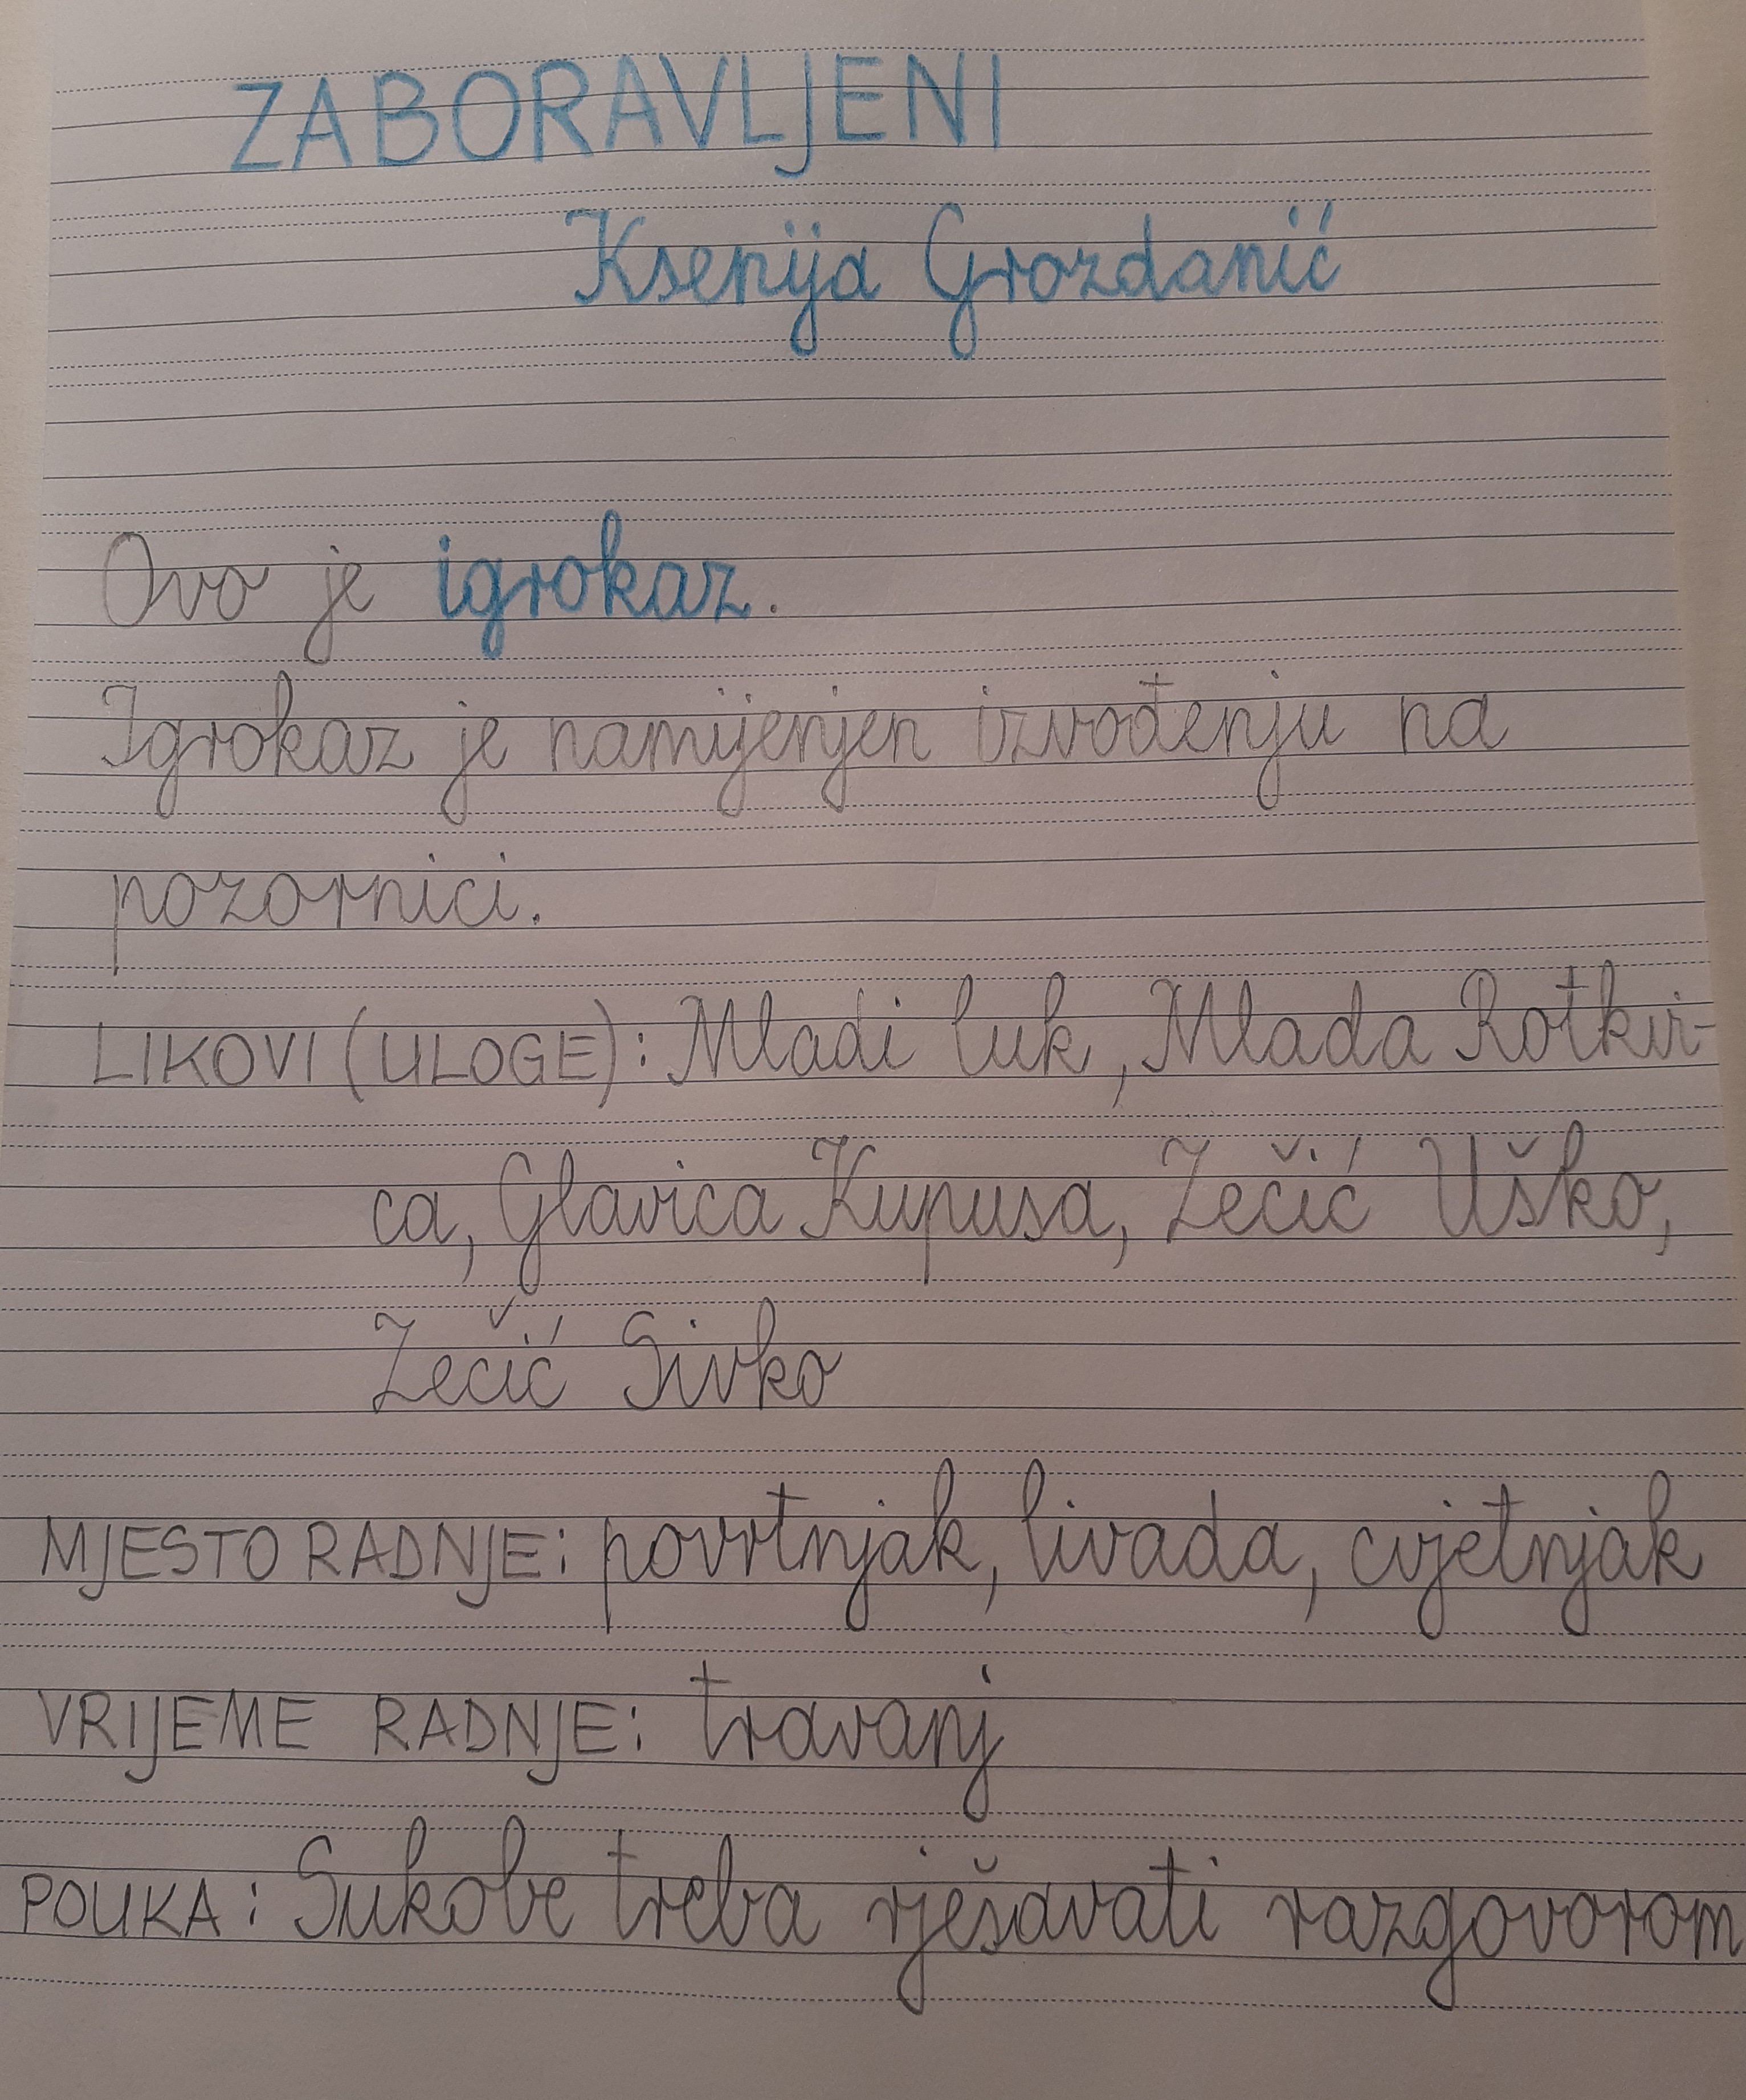 ZABORAVLJENI
Ksenija Grozdanić
Ovo je igrokaz.
Igrokaz je namijenjen izvođenju na
pozornici.
LIKOVI (ULOGE): Mladi luk, Mlada Rotkvi-
ca, Glavica Kupusa, Zečić Uško,
Zečić Sivko
MJESTO RADNJE: povrtnjak, livada, cvjetnjak
VRIJEME RADNJE: travanj
POUKA: Sukobe treba rješavati razgovorom